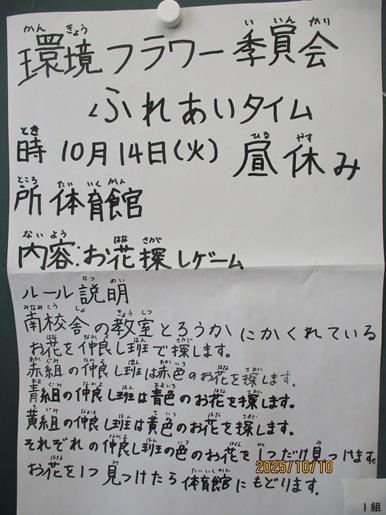 環境フラワー委員会
ふれあいタイム
時 10月14日(火) 昼休み
所 体育館
内容:お花探しゲーム
ルール説明
南校舎の教室とろうかにかくれている
お花を仲良し班で探します。
赤組の仲良し班は赤色のお花を探します。
青組の仲良し班は青色のお花を探します。
黄組の仲良し班は黄色のお花を探します。
それぞれの仲良し班の色のお花を1つだけ見つけます。
お花を1つ見つけたら体育館にもどります。
2025/10/10
1組